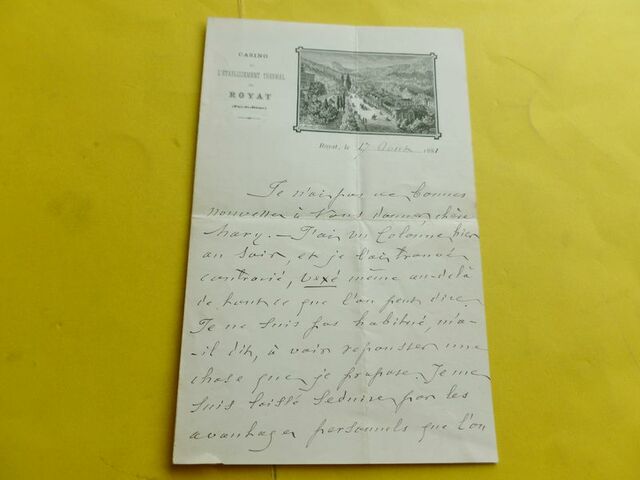 CASINO
DE
L'ETABLISSEMENT THERMAL
DE
ROYAT
(Puy-de-Dôme)
Royat, le 17 Août 1881
Je n'ai pas de bonnes
nouvelles à vous donner, chère
Mary. — J'ai vu Colonne hier
au soir, et je l'ai trouvé
contrarié, vexé même au-delà
de tout ce que l'on peut dire.
Je ne suis pas habitué, m'a-
-il dit, à voir repousser une
chose que je propose. Je me
suis laissé séduire par les
avantages personnels que l'on